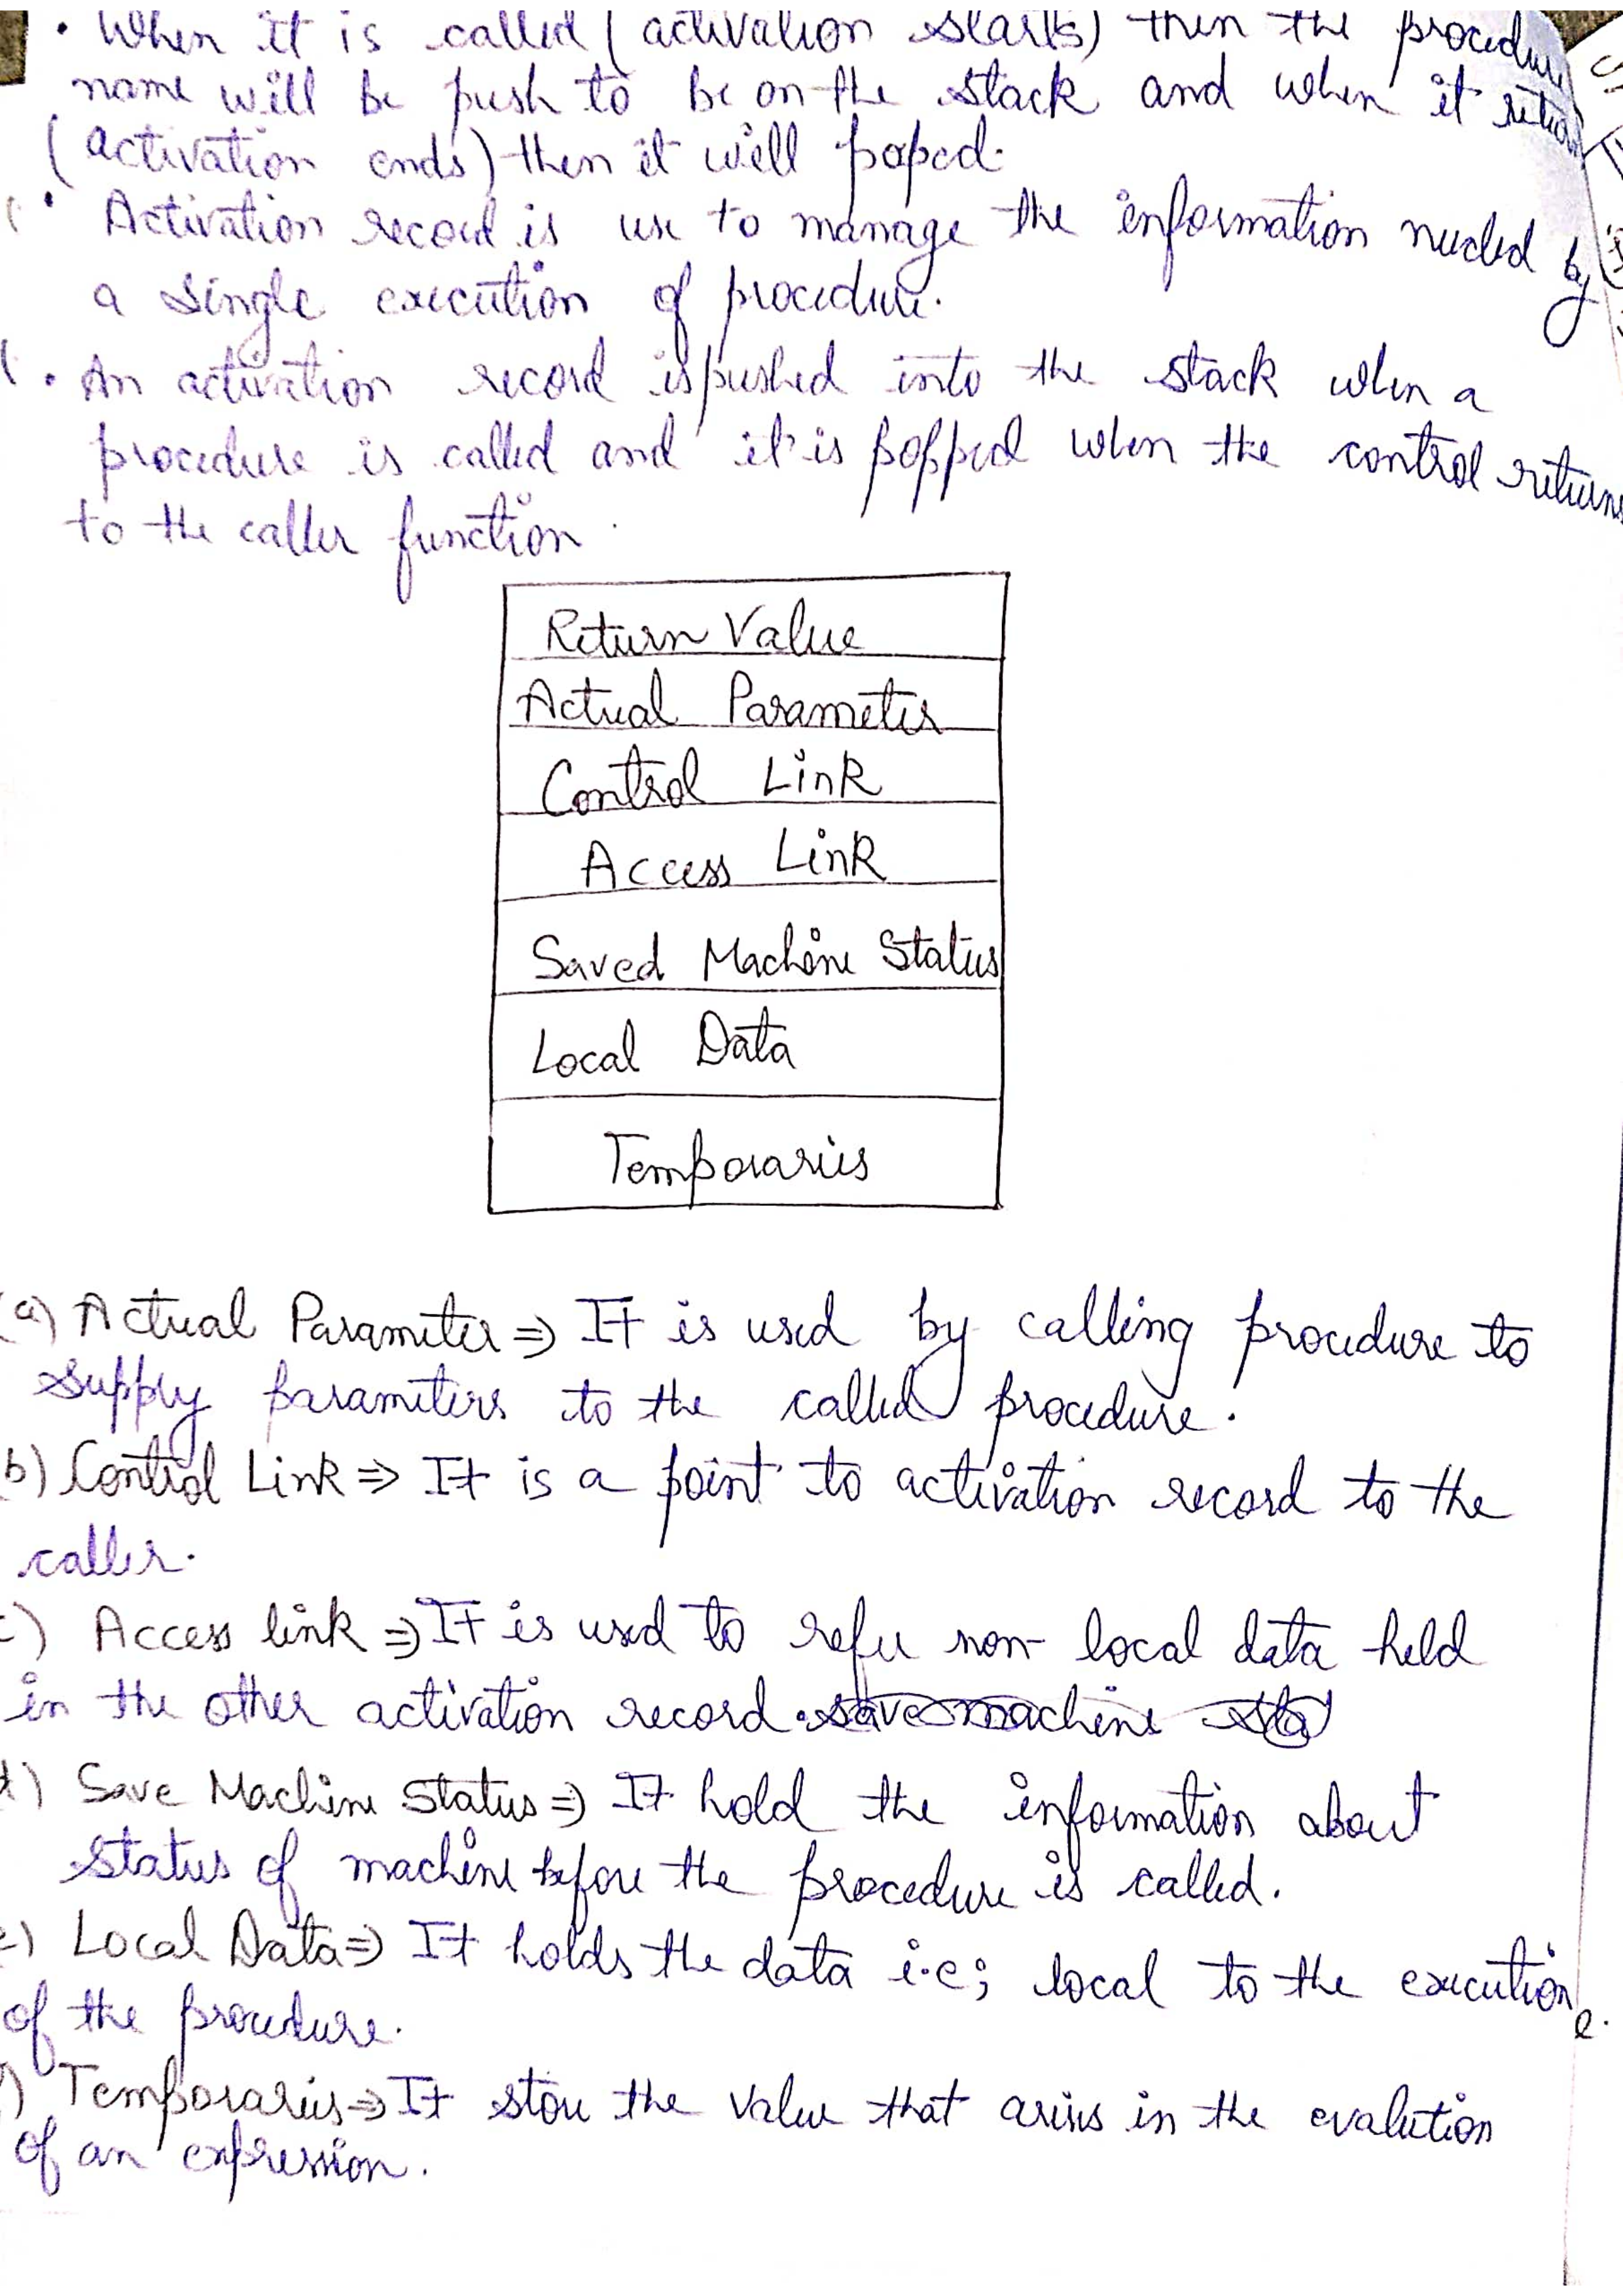 • When it is called (activation starts) then the procedure
name will be push to be on the stack and when it return
(activation ends) then it will poped.
• Activation record is use to manage the information needed by
a single execution of procedure.
• An activation record is pushed into the stack when a
procedure is called and it is popped when the control returns
to the caller function.
Return Value
Actual Parameter
Control Link
Access Link
Saved Machine Status
Local Data
Temporaries
(a) Actual Parameter ⇒ It is used by calling procedure to
supply parameters to the called procedure.
b) Control Link ⇒ It is a point to activation record to the
caller.
c) Access link ⇒ It is used to refer non-local data held
in the other activation record. save machine sta
d) Save Machine Status ⇒ It hold the information about
status of machine before the procedure is called.
e) Local Data ⇒ It holds the data i.e; local to the execution
of the procedure.
) Temporaries ⇒ It store the value that arises in the evalution
of an expression.